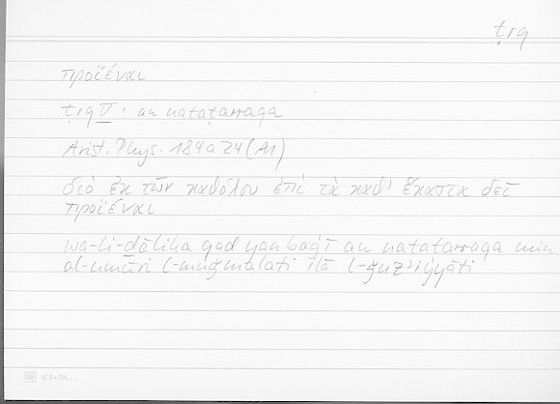 ṭrq
προϊέναι
ṭrq V : an nataṭarraqa
Arist. Phys. 184a24 (A1)
διὸ ἐκ τῶν καθόλου ἐπὶ τὰ καθ' ἕκαστα δεῖ
προϊέναι
wa-li-ḏālika qad yanbaġī an nataṭarraqa min
al-umūri l-muǧmalati ilā l-ǧuzʾiyyāti